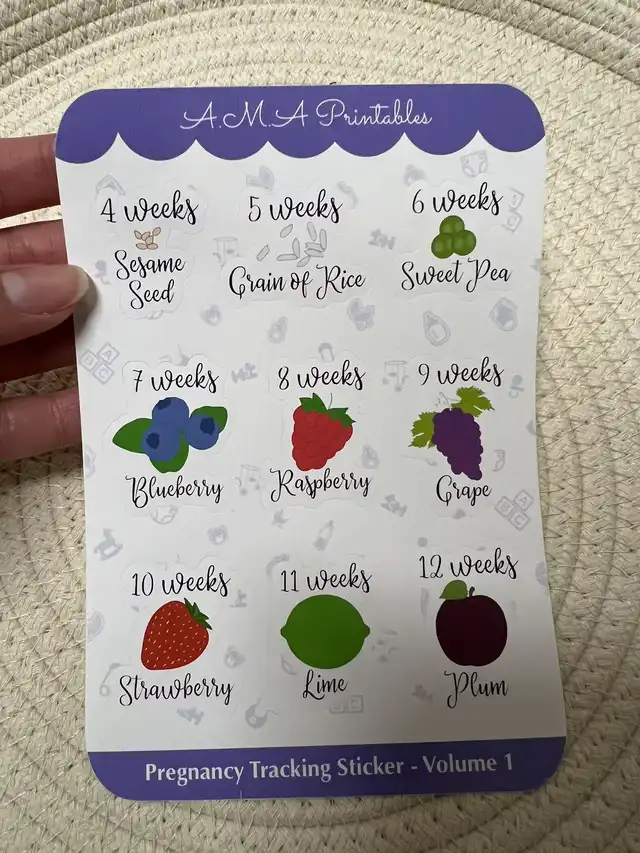 A.M.A Printables
4 weeks
Sesame
Seed
5 weeks
Grain of Rice
6 weeks
Sweet Pea
7 weeks
Blueberry
8 weeks
Raspberry
9 weeks
Grape
10 weeks
Strawberry
11 weeks
Lime
12 weeks
Plum
Pregnancy Tracking Sticker - Volume 1